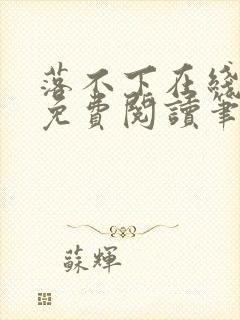 落不下在线
免費閱讀筆
蘇輝